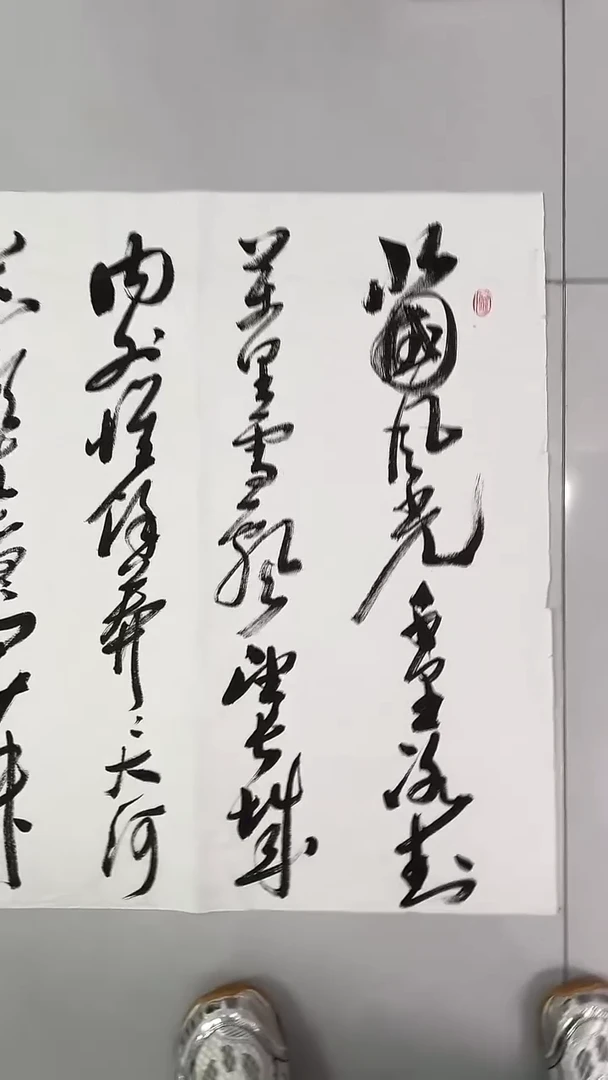 北國风光千里冰封
万里雪飘望长城
内外惟馀莽〻大河